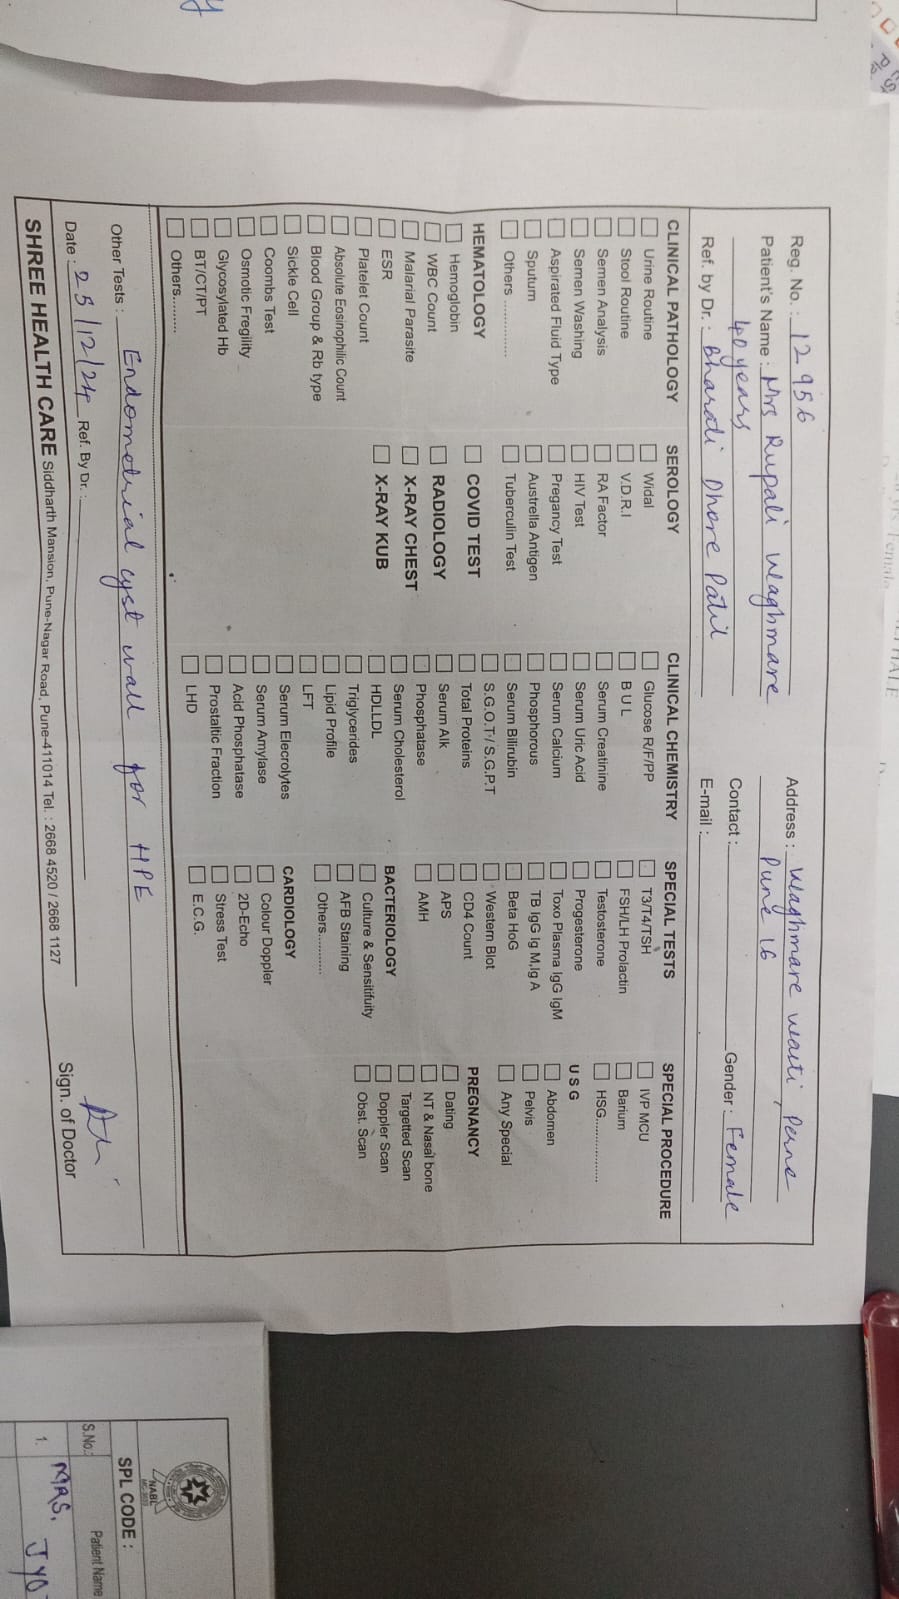 Reg. No. : 12 956
Patient's Name : Mrs Rupali Waghmare
40 years
Ref. by Dr. : Bharati Dhore Patil
Address : Waghmare wasti, Pune
Pune 16
Contact :
Gender : Female
E-mail :
CLINICAL PATHOLOGY
Urine Routine
Stool Routine
Semen Analysis
Semen Washing
Aspirated Fluid Type
Sputum
Others ............
HEMATOLOGY
Hemoglobin
WBC Count
Malarial Parasite
ESR
Platelet Count
Absolute Eosinophilic Count
Blood Group & Rb type
Sickle Cell
Coombs Test
Osmotic Fregility
Glycosylated Hb
BT/CT/PT
Others.........
SEROLOGY
Widal
V.D.R.I
RA Factor
HIV Test
Pregancy Test
Austrella Antigen
Tuberculin Test
COVID TEST
RADIOLOGY
X-RAY CHEST
X-RAY KUB
CLINICAL CHEMISTRY
Glucose R/F/PP
B U L
Serum Creatinine
Serum Uric Acid
Serum Calcium
Phosphorous
Serum Bilirubin
S.G.O.T./ S.G.P.T
Total Proteins
Serum Alk
Phosphatase
Serum Cholesterol
HDLLDL
Triglycerides
Lipid Profile
LFT
Serum Elecrolytes
Serum Amylase
Acid Phosphatase
Prostaltic Fraction
LHD
SPECIAL TESTS
T3/T4/TSH
FSH/LH Prolactin
Testosterone
Progesterone
Toxo Plasma IgG IgM
TB IgG Ig M.Ig A
Beta HoG
Western Blot
CD4 Count
APS
AMH
BACTERIOLOGY
Culture & Sensitifuity
AFB Staining
Others.........
CARDIOLOGY
Colour Doppler
2D-Echo
Stress Test
E.C.G.
SPECIAL PROCEDURE
IVP MCU
Barium
HSG...............
U S G
Abdomen
Pelvis
Any Special
PREGNANCY
Dating
NT & Nasal bone
Targetted Scan
Doppler Scan
Obst. Scan
Other Tests : Endometrial cyst wall for HPE
Date : 25/12/24 Ref. By Dr. :
Sign. of Doctor
SHREE HEALTH CARE Siddharth Mansion, Pune-Nagar Road, Pune-411014 Tel. : 2668 4520 / 2668 1127
NABL
SPL CODE :
S.No.:
Patient Name
1.
MRS.